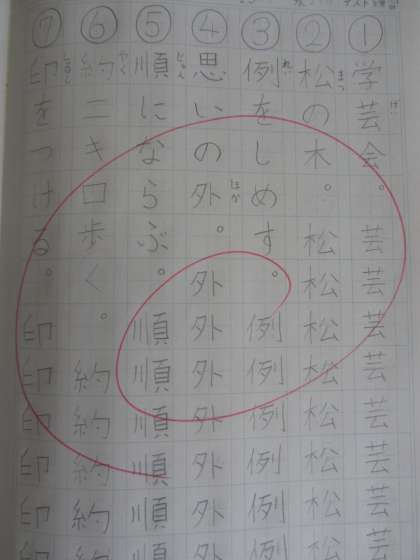 ① 学芸会。芸芸芸芸芸芸芸芸
② 松の木。松松松松松松松松
まつ
③ 例をしめす。例例例例例例
れい
④ 思いの外。外外外外外外外
ほか
⑤ 順にならぶ。順順順順順順
じゅん
⑥ 約二キロ歩く。約約約約約
やく
⑦ 印をつける。印印印印印印
しるし